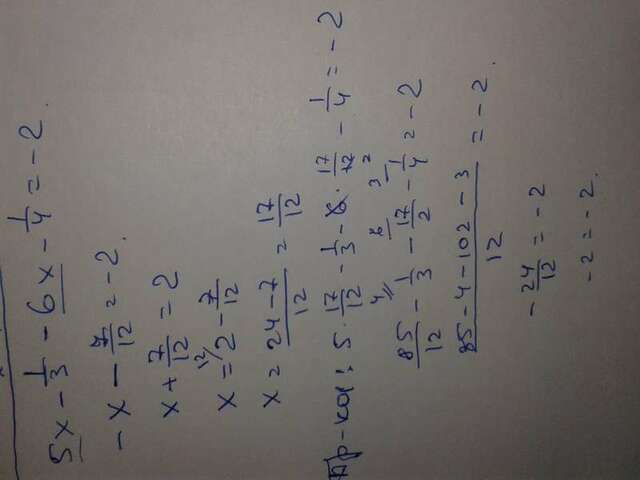 5x - 1/3 - 6x - 1/4 = -2.
-x - 7/12 = -2.
x + 7/12 = 2
x = 12/ 2 - 7/12
x = (24-7)/12 = 17/12
Пр-ка: 5 · 17/12 - 1/3 - 6 · 17/12 2 - 1/4 = -2
85/12 - 4/ 1/3 - 6/ 17/2 - 3/ 1/4 = -2
(85-4-102-3)/12 = -2.
-24/12 = -2
-2 = -2.